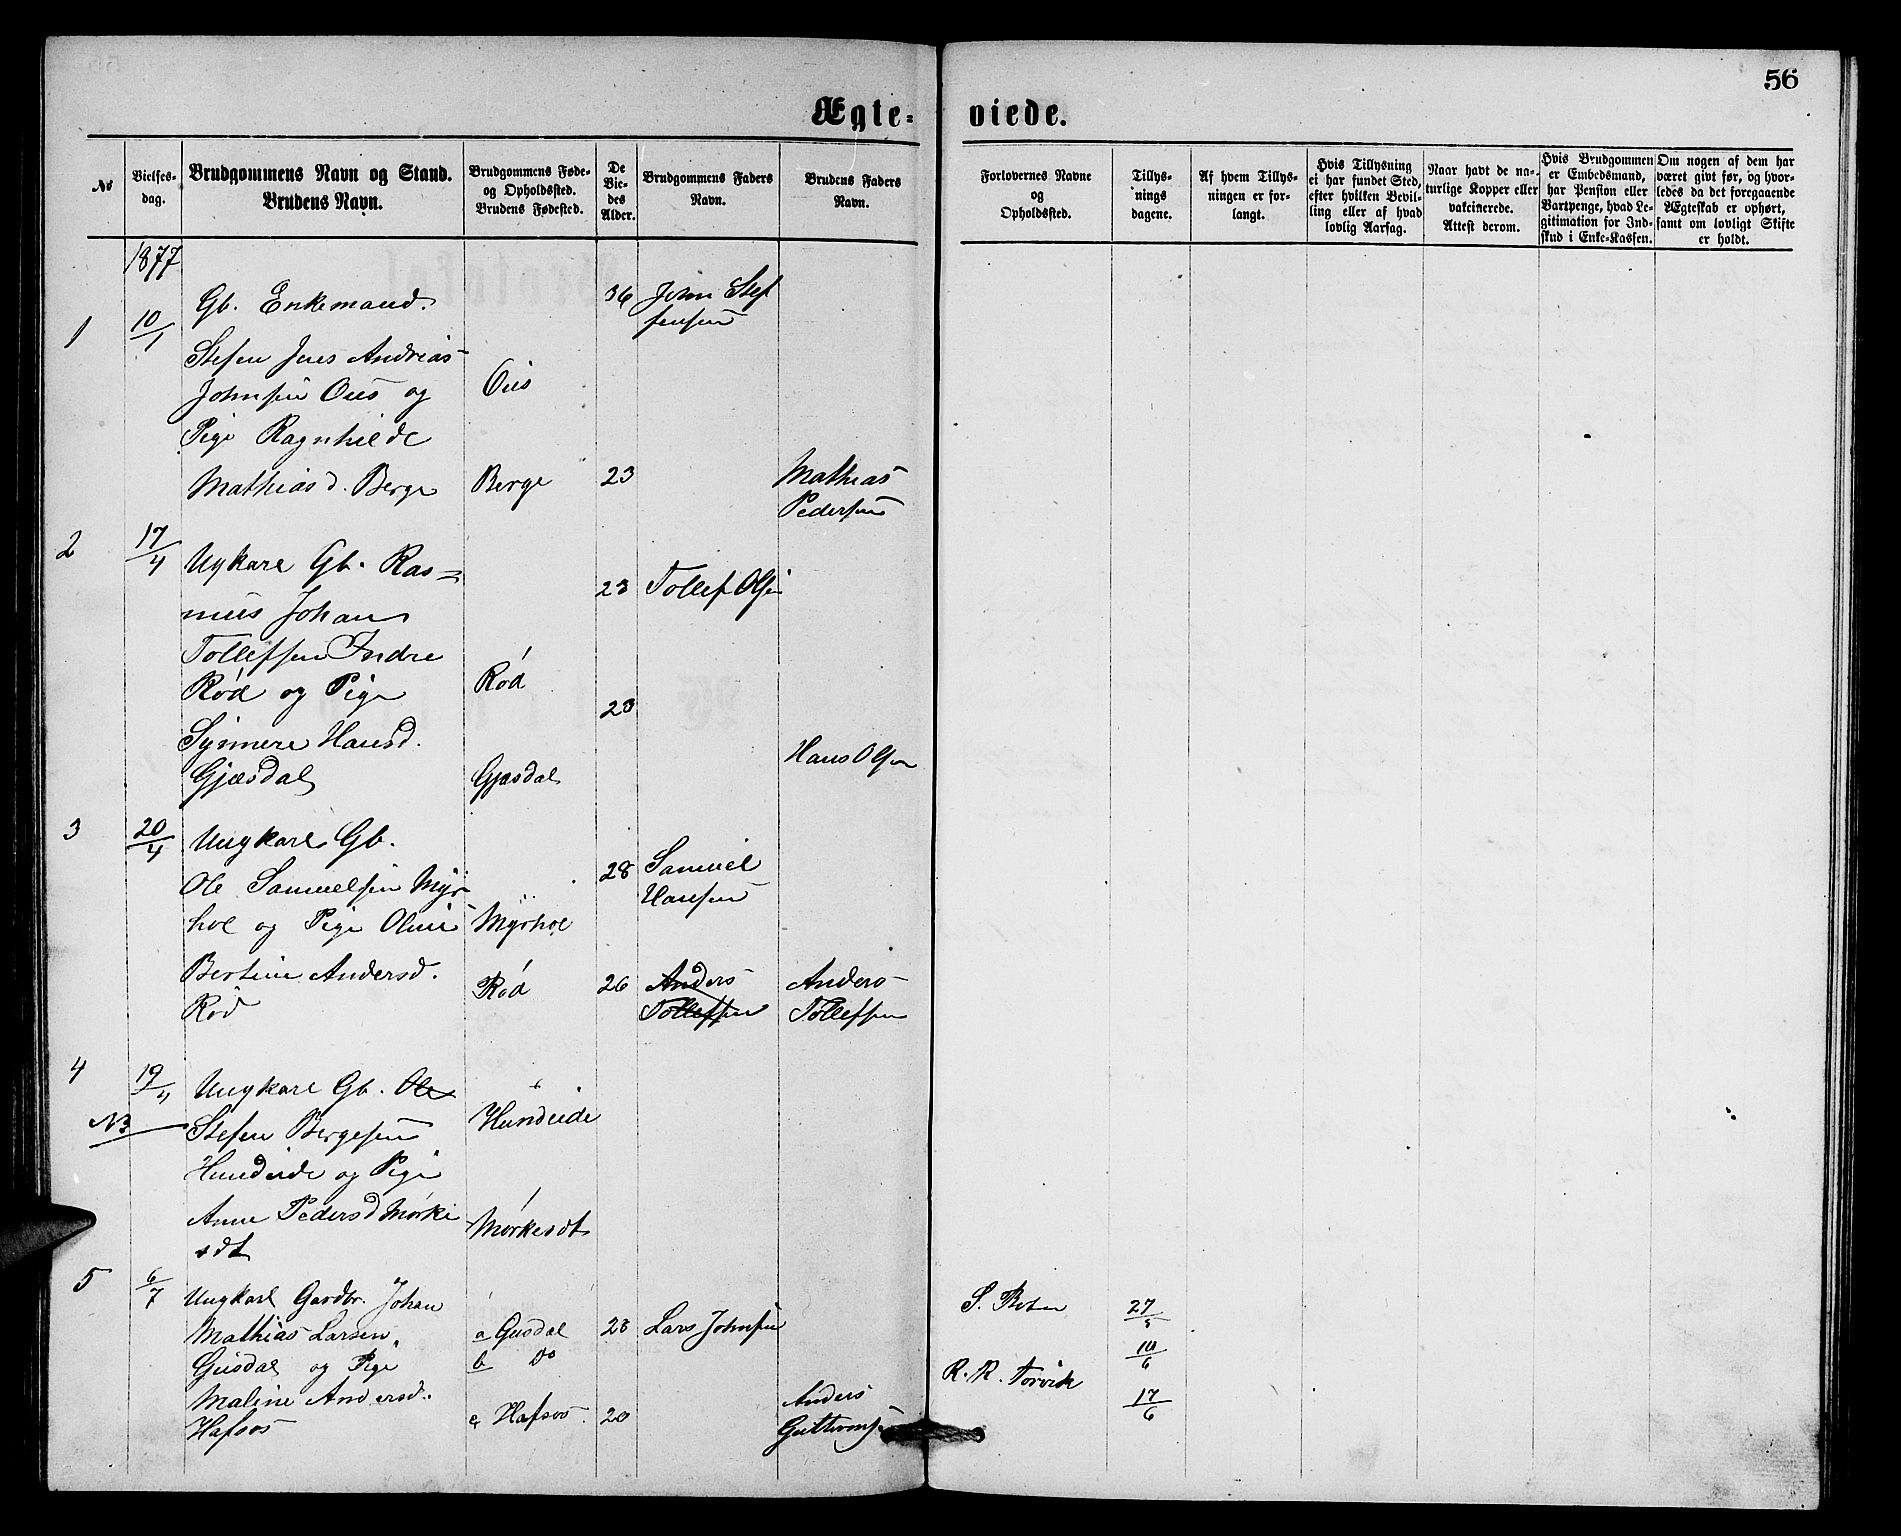 56
Ægte- viede.
No
Vielses-
dag.
Brudgommens Navn og Stand.
Brudens Navn.
Brudgommens Føde-
og Opholdssted.
Brudens Fødested.
De
Vie-
des
Alder.
Brudgommens Faders
Navn.
Brudens Faders
Navn.
Forlovernes Navne
og
Opholdssted.
Tillys-
nings
dagene.
Af hvem Tillys-
ningen er for-
langt.
Hvis Tillysning
ei har fundet Sted,
efter hvilken Bevil-
ling eller af hvad
lovlig Aarsag.
Naar havt de na-
turlige Kopper eller
vakcinerede.
Attest derom.
Hvis Brudgommen
er Embedsmand,
har Pension eller
Vartpenge, hvad Le-
gitimation for Ind-
skud i Enke-Kassen.
Om nogen af dem har
været givt før, og hvor-
ledes da det foregaaende
Ægteskab er ophørt,
samt om lovligt Skifte
er holdt.
1877
1 10/1 Gb. Enkemand. 36 John Stef
fensen
Stefen Jens Andreas
Johnsen Ous og Ous
Pige Ragnhilde
Mathiasd. Berge Berge 23 Mathias
Pedersen
2 17/4 Ugkare Gb. Ras=
23 Tollef Olsen
mus Johan
Tollefsen Indre
Rød og Pige Rød
23
Synnere Hansd.
Hans Olsen
Gjæsdal Gjæsdal
3 20/4 Ungkarl Gb.
Ole Samuelsen Myr- 28 Samuel
Hansen
hol og Pige Oline Myrhol
Bertine Andersd. Rød 26 Anders
Tollefsen Anders
Tollefsen
Rød
4 19/4 Ungkarl Gb. Ole
NB Stefen Bergesen Hundeide
Hundeide og Pige
Anne Pedersd Mørke Mørkesdt
sdt
5 6/7 Ungkarl Gardbr. Johan S. Boten 27/5
Mathias Larsen a Gusdal 28 Lars Johnsen
Gusdal og Pige b Do 10/6
R. R. Torvik
Maline Andersd. Anders 17/6
Hafsos a Hafsos. 20 Guttormsen